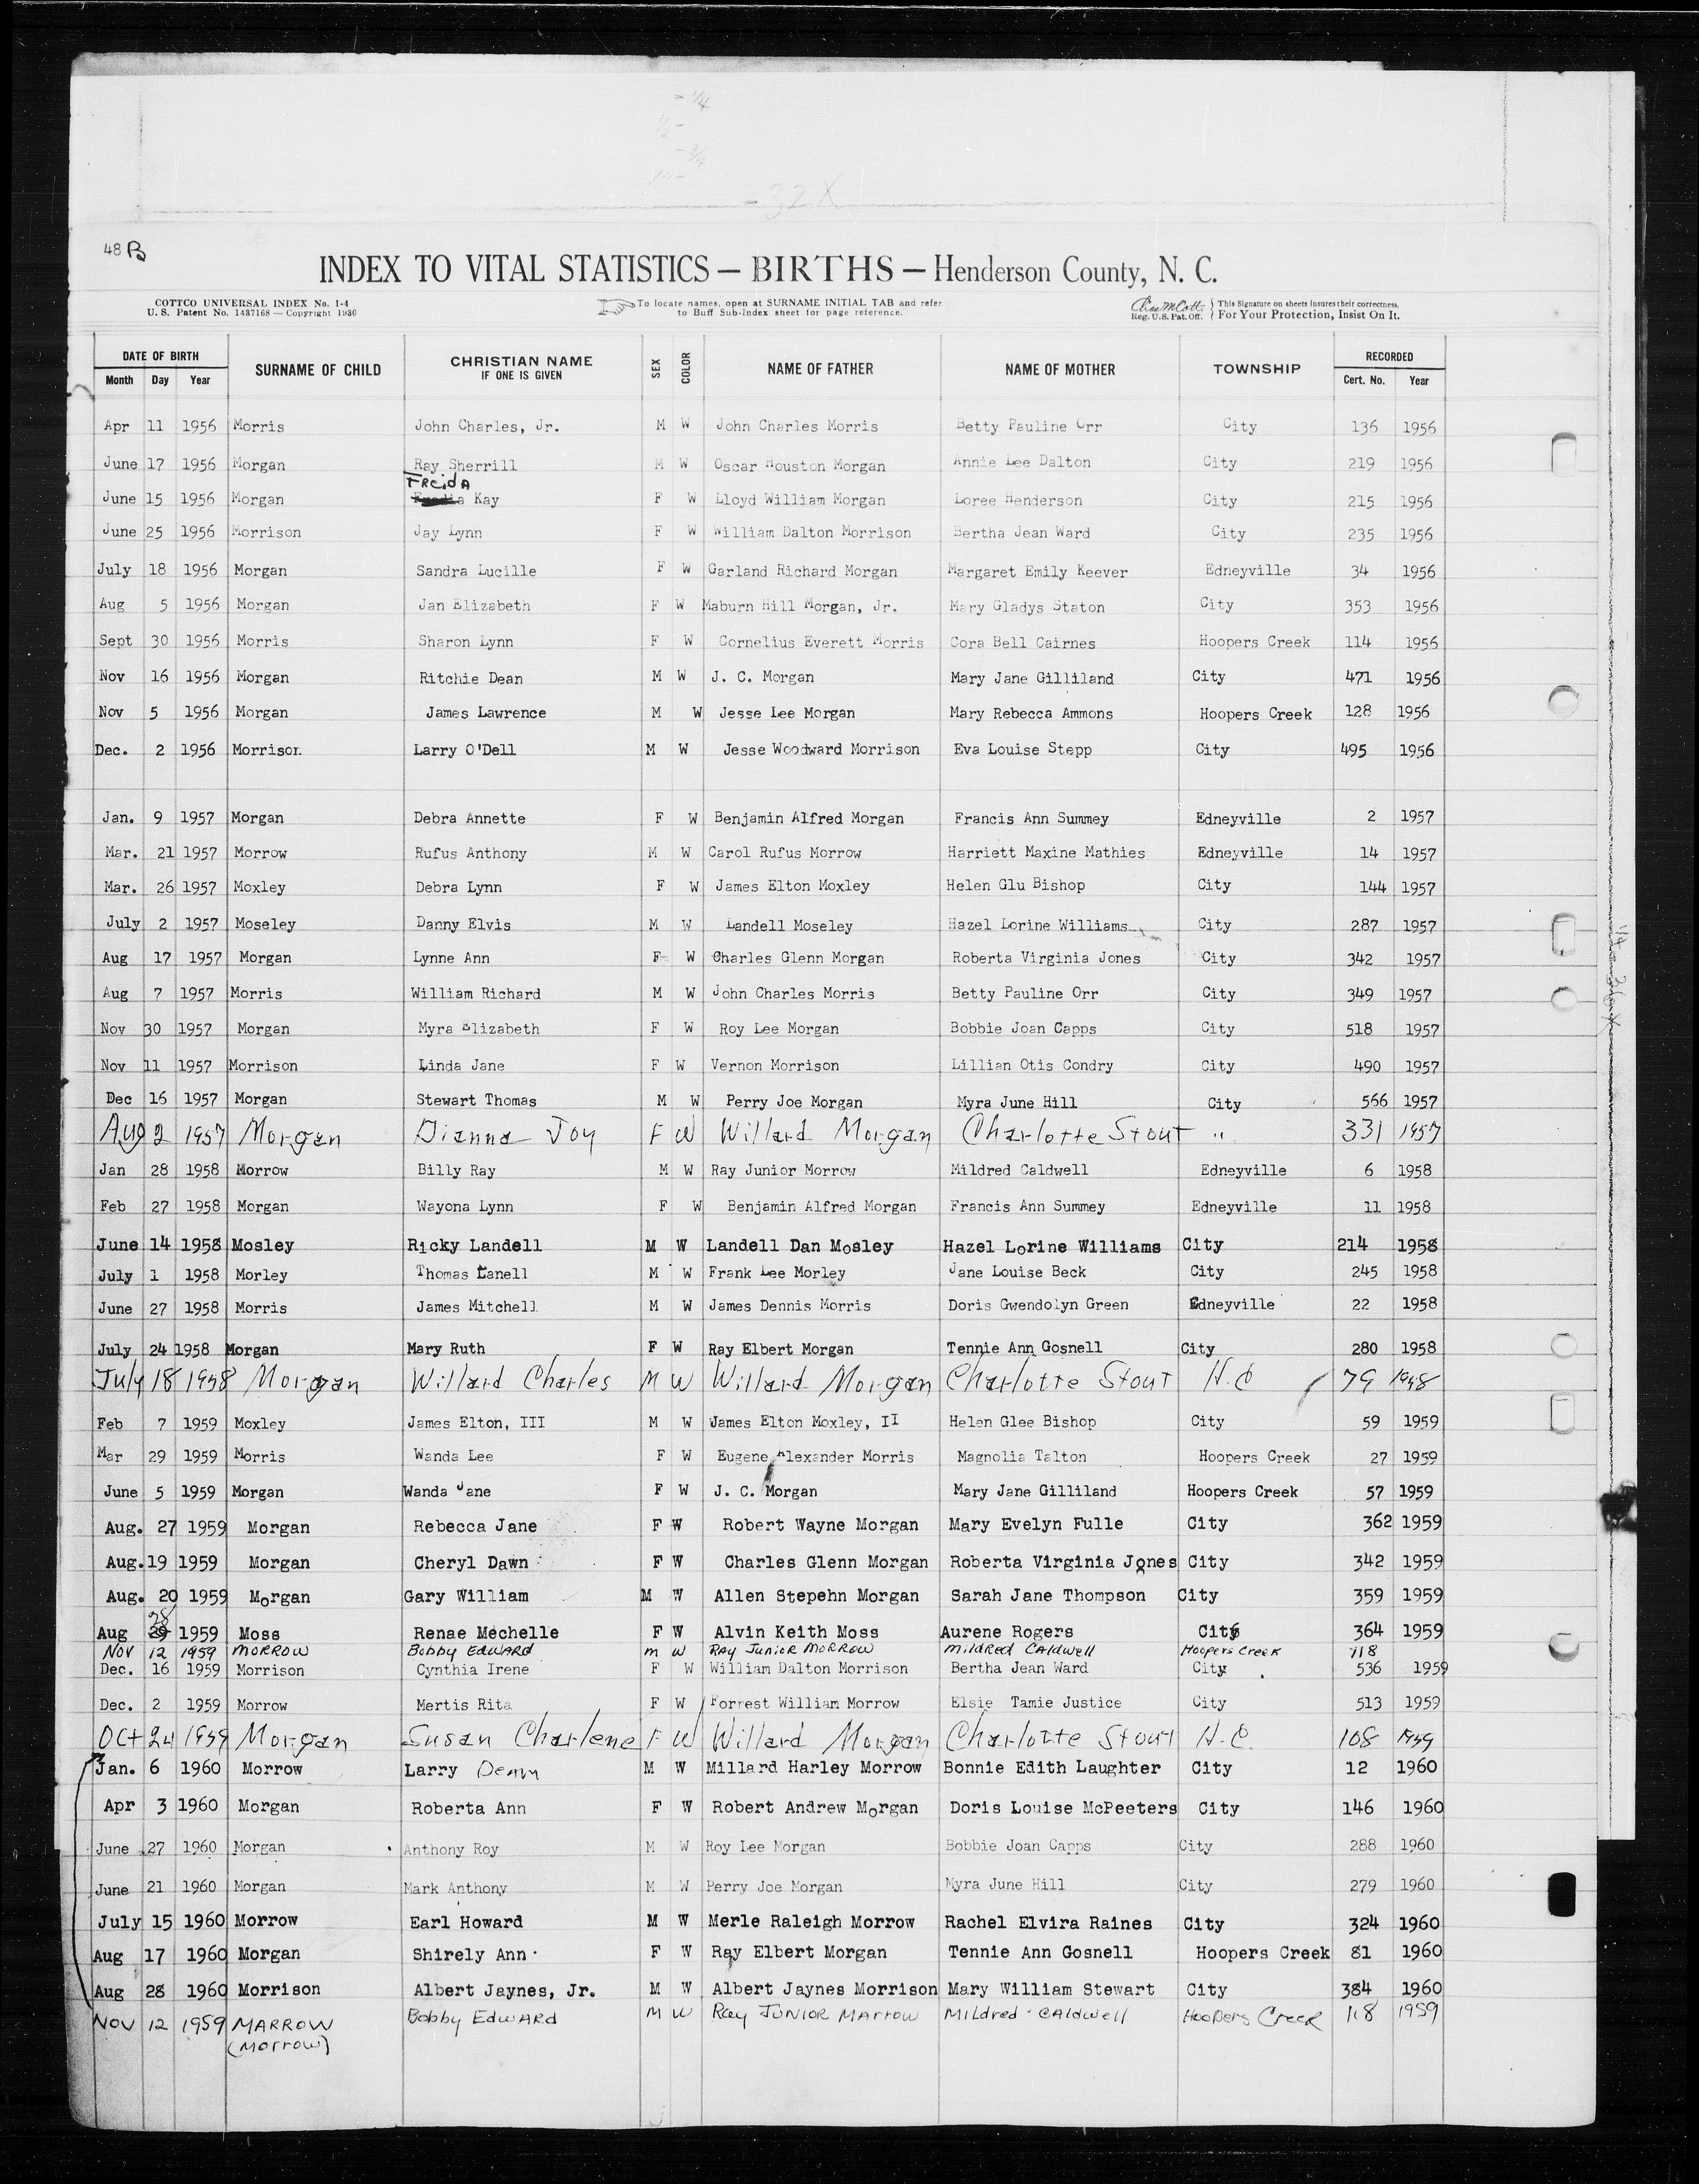 48 B
INDEX TO VITAL STATISTICS — BIRTHS — Henderson County, N. C.
COTTCO UNIVERSAL INDEX No. 1-4
U. S. Patent No. 1437168 — Copyright 1930
To locate names, open at SURNAME INITIAL TAB and refer
to Buff Sub-Index sheet for page reference.
Reg. U.S. Pat. Off.
This Signature on sheets insures their correctness.
For Your Protection, Insist On It.
DATE OF BIRTH SURNAME OF CHILD CHRISTIAN NAME IF ONE IS GIVEN SEX COLOR NAME OF FATHER NAME OF MOTHER TOWNSHIP RECORDED
Month Day Year Cert. No. Year
Apr 11 1956 Morris John Charles, Jr. M W John Charles Morris Betty Pauline Orr City 136 1956
June 17 1956 Morgan Ray Sherrill M W Oscar Houston Morgan Annie Lee Dalton City 219 1956
June 15 1956 Morgan FReidA Kay F W Lloyd William Morgan Loree Henderson City 215 1956
June 25 1956 Morrison Jay Lynn F W William Dalton Morrison Bertha Jean Ward City 235 1956
July 18 1956 Morgan Sandra Lucille F W Garland Richard Morgan Margaret Emily Keever Edneyville 34 1956
Aug 5 1956 Morgan Jan Elizabeth F W Maburn Hill Morgan, Jr. Mary Gladys Staton City 353 1956
Sept 30 1956 Morris Sharon Lynn F W Cornelius Everett Morris Cora Bell Cairnes Hoopers Creek 114 1956
Nov 16 1956 Morgan Ritchie Dean M W J. C. Morgan Mary Jane Gilliland City 471 1956
Nov 5 1956 Morgan James Lawrence M W Jesse Lee Morgan Mary Rebecca Ammons Hoopers Creek 128 1956
Dec. 2 1956 Morrison Larry O'Dell M W Jesse Woodward Morrison Eva Louise Stepp City 495 1956
Jan. 9 1957 Morgan Debra Annette F W Benjamin Alfred Morgan Francis Ann Summey Edneyville 2 1957
Mar. 21 1957 Morrow Rufus Anthony M W Carol Rufus Morrow Harriett Maxine Mathies Edneyville 14 1957
Mar. 26 1957 Moxley Debra Lynn F W James Elton Moxley Helen Glu Bishop City 144 1957
July 2 1957 Moseley Danny Elvis M W Landell Moseley Hazel Lorine Williams City 287 1957
Aug 17 1957 Morgan Lynne Ann F W Charles Glenn Morgan Roberta Virginia Jones City 342 1957
Aug 7 1957 Morris William Richard M W John Charles Morris Betty Pauline Orr City 349 1957
Nov 30 1957 Morgan Myra Elizabeth F W Roy Lee Morgan Bobbie Joan Capps City 518 1957
Nov 11 1957 Morrison Linda Jane F W Vernon Morrison Lillian Otis Condry City 490 1957
Dec 16 1957 Morgan Stewart Thomas M W Perry Joe Morgan Myra June Hill City 566 1957
Aug 2 1957 Morgan Dianna Joy F W Willard Morgan Charlotte Stout " 331 1957
Jan 28 1958 Morrow Billy Ray M W Ray Junior Morrow Mildred Caldwell Edneyville 6 1958
Feb 27 1958 Morgan Wayona Lynn F W Benjamin Alfred Morgan Francis Ann Summey Edneyville 11 1958
June 14 1958 Mosley Ricky Landell M W Landell Dan Mosley Hazel Lorine Williams City 214 1958
July 1 1958 Morley Thomas Lanell M W Frank Lee Morley Jane Louise Beck City 245 1958
June 27 1958 Morris James Mitchell M W James Dennis Morris Doris Gwendolyn Green Edneyville 22 1958
July 24 1958 Morgan Mary Ruth F W Ray Elbert Morgan Tennie Ann Gosnell City 280 1958
July 18 1958 Morgan Willard Charles M W Willard Morgan Charlotte Stout H.C 79 1958
Feb 7 1959 Moxley James Elton, III M W James Elton Moxley, II Helen Glee Bishop City 59 1959
Mar 29 1959 Morris Wanda Lee F W Eugene Alexander Morris Magnolia Talton Hoopers Creek 27 1959
June 5 1959 Morgan Wanda Jane F W J. C. Morgan Mary Jane Gilliland Hoopers Creek 57 1959
Aug. 27 1959 Morgan Rebecca Jane F W Robert Wayne Morgan Mary Evelyn Fulle City 362 1959
Aug. 19 1959 Morgan Cheryl Dawn F W Charles Glenn Morgan Roberta Virginia Jones City 342 1959
Aug. 20 1959 Morgan Gary William M W Allen Stepehn Morgan Sarah Jane Thompson City 359 1959
28
Aug 29 1959 Moss Renae Mechelle F W Alvin Keith Moss Aurene Rogers City 364 1959
Nov 12 1959 MORROW Bobby EdwARd m W RAy JuNioR MoRRow mildRed CAldwell Hoopers Creek 118
Dec. 16 1959 Morrison Cynthia Irene F W William Dalton Morrison Bertha Jean Ward City 536 1959
Dec. 2 1959 Morrow Mertis Rita F W Forrest William Morrow Elsie Tamie Justice City 513 1959
Oct 24 1959 Morgan Susan Charlene F W Willard Morgan Charlotte Stout H.C. 108 1959
Jan. 6 1960 Morrow Larry Dean M W Millard Harley Morrow Bonnie Edith Laughter City 12 1960
Apr 3 1960 Morgan Roberta Ann F W Robert Andrew Morgan Doris Louise McPeeters City 146 1960
June 27 1960 Morgan Anthony Roy M W Roy Lee Morgan Bobbie Joan Capps City 288 1960
June 21 1960 Morgan Mark Anthony M W Perry Joe Morgan Myra June Hill City 279 1960
July 15 1960 Morrow Earl Howard M W Merle Raleigh Morrow Rachel Elvira Raines City 324 1960
Aug 17 1960 Morgan Shirely Ann F W Ray Elbert Morgan Tennie Ann Gosnell Hoopers Creek 81 1960
Aug 28 1960 Morrison Albert Jaynes, Jr. M W Albert Jaynes Morrison Mary William Stewart City 384 1960
Nov 12 1959 MARROW Bobby EdwARd M W Ray JUNIOR MArrow MILdred CAldwell Hoopers Creek 118 1959
(Morrow)